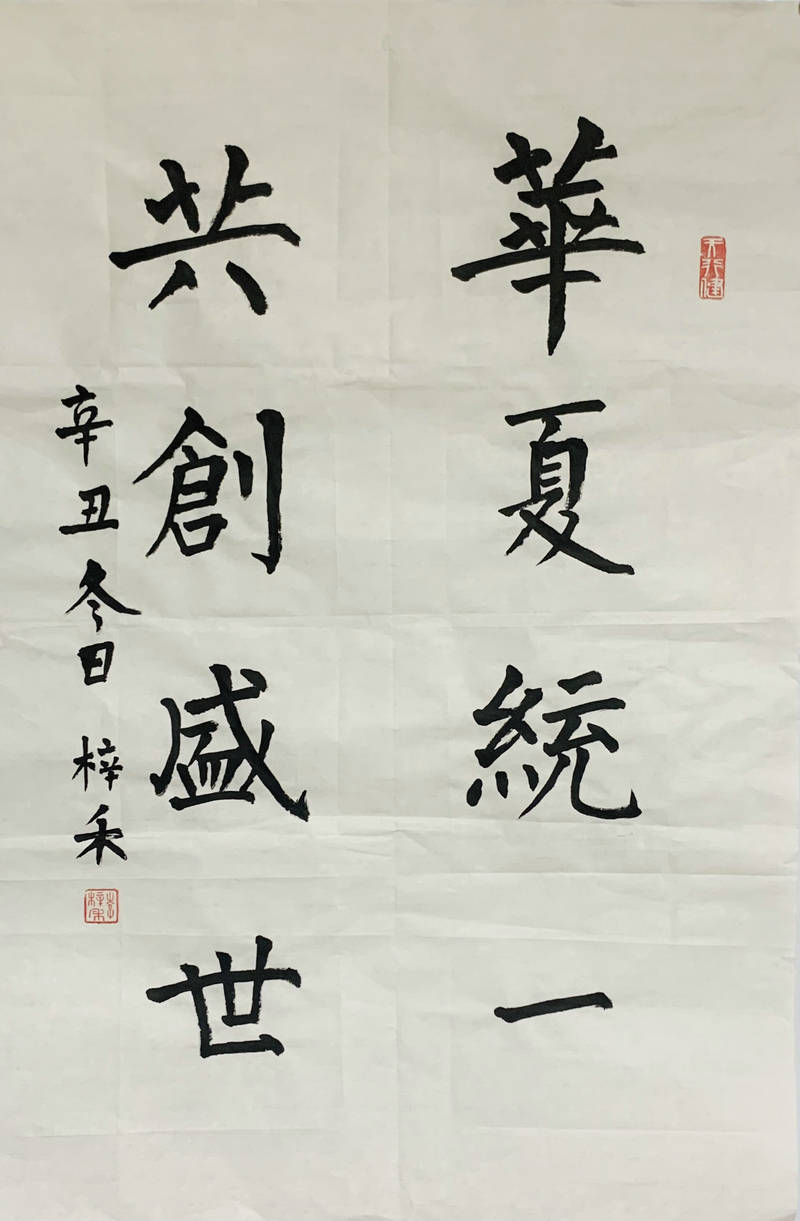 天行健
華夏統一
共創盛世
辛丑冬日 梓禾